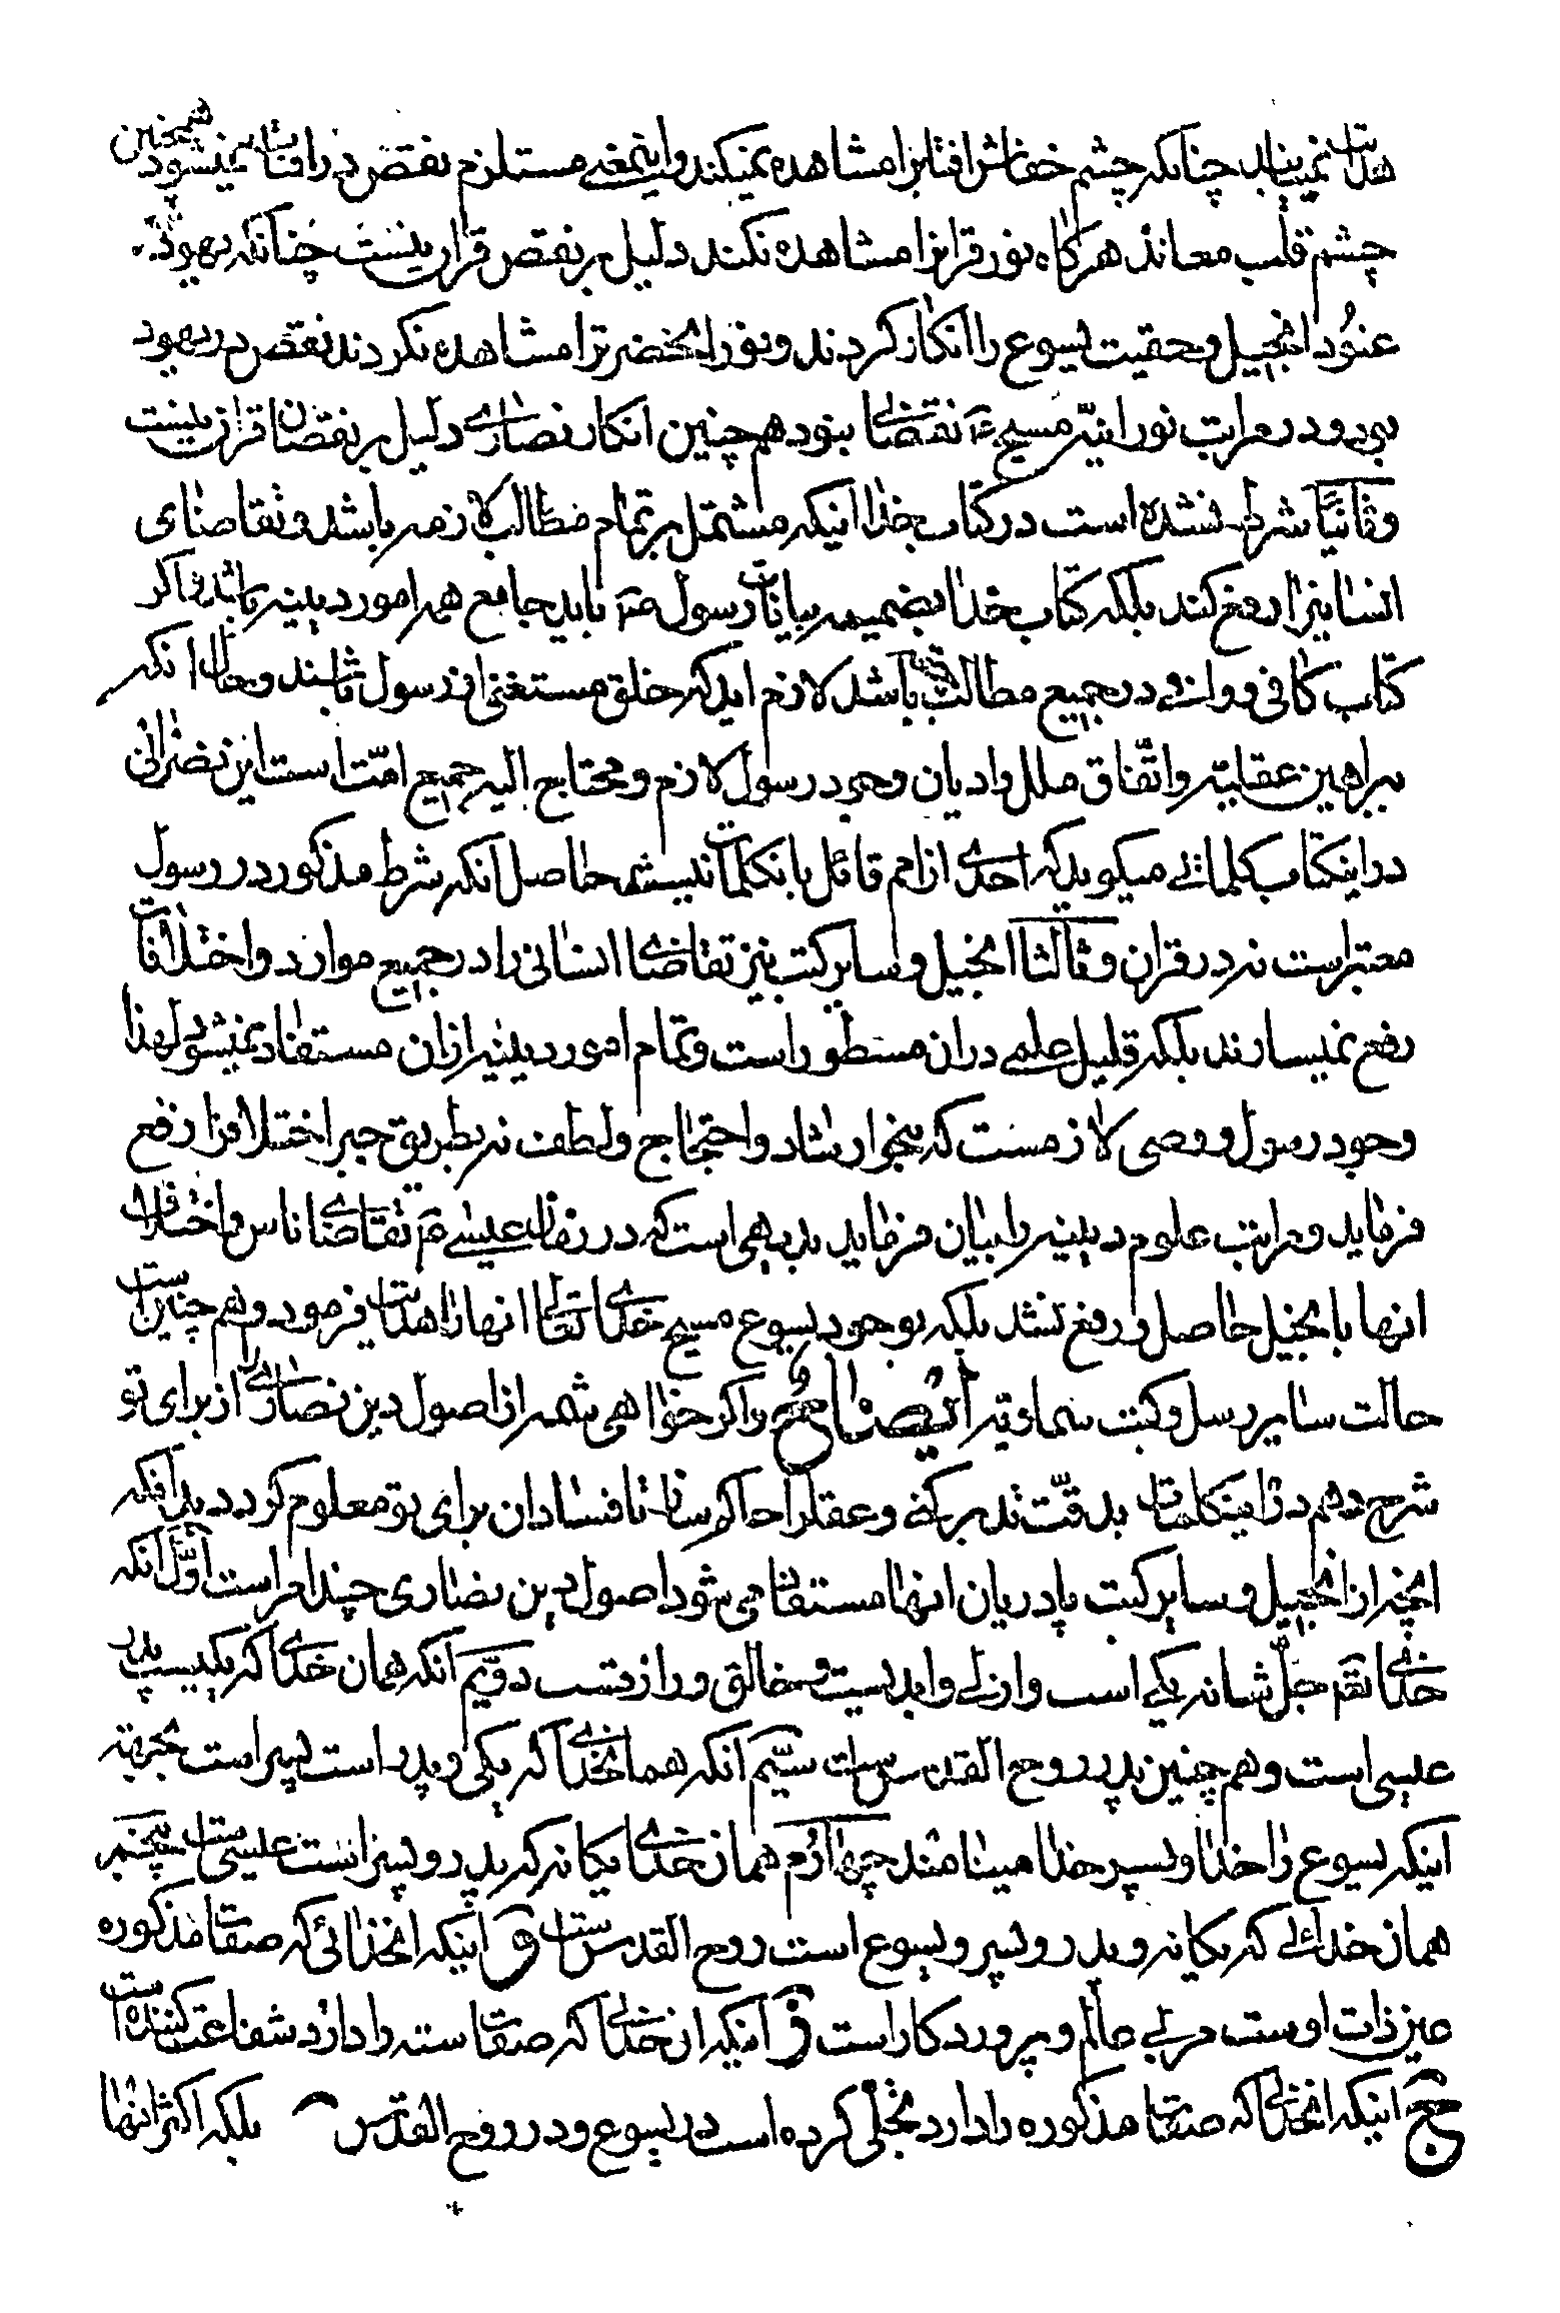 هدایت نمییابد چنانکه چشم خفاش افتابرا مشاهده نمیکند و اینمعنی مستلزم نقص در افتاب نمیشود همچنین
چشم قلب معاند هرکاه نور قرانرا مشاهده نکند دلیل بر نقص قران نیست چنانکه یهود
عنود انجیل و حقیت یسوع را انکار کردند و نور انحضرترا مشاهده نکردند نقص در یهود
بود و در مراتب نورانیه مسیح ع نقضی نبود هم چنین انکار نصاری دلیل بر نقصان قران نیست
و ثانیا شرط نشده است در کتاب خدا اینکه مشتمل بر تمام مطالب لازمه باشد و تقاضای
انسانیرا رفع کند بلکه کتاب خدا بضمیمه بیانات رسول ص باید جامع همه امور دینیه باشد و اکر
کتاب کافی و وافی در جمیع مطالب باشد لازم اید که خلق مستغنی از رسول باشند و حال انکه
ببراهین عقلیه و اتفاق ملل و ادیان وجود رسول لازم و محتاج الیه جمیع امت است این نصرانی
در اینکتاب کلماتی میکوید که احدی از امم قائل بانکلمات نیستند حاصل انکه شرط مذکور در رسول
معتبر است نه در قران و ثالثا انجیل و سایر کتب نیز تقاضای انسانی را در جمیع موارد و اختلافات
رفع نمیسازند بلکه قلیل علمی دران مسطور است و تمام امور دینیه از ان مستفاد نمیشود لهذا
وجود رسول و وصی لازمست که بنحو ارشاد و احتجاج و لطف نه بطریق جبر اختلافرا رفع
فرماید و مراتب علوم دینیه را بیان فرماید بدیهی است که در زمان عیسی ع تقاضای ناس و اختلافات
انها با انجیل حاصل و رفع نشد بلکه بوجود یسوع مسیح خدای تعالی انها را هدایت فرمود و هم چنین است
حالت سایر رسل و کتب سماویه ایضا و اکر خواهی شمه از اصول دین نصاری را از برای تو
شرح دهم در اینکلمات بدقت تدبر کن و عقلرا حاکم ساز تا فساد ان برای تو معلوم کردد بدانکه
انچه از انجیل و سایر کتب پادریان انها مستفاد می شود اصول دین نصاری چند امر است اول انکه
خدای تعم جل شانه یکی است و ازلی و ابدیست و خالق و رازقست دویم انکه همان خدا که یکیست پدر
عیسی است و هم چنین پدر روح القدس است سیم انکه همانخدای که یکی و پدر است پسر است بجهة
اینکه یسوع را خدا و پسر خدا مینامند چهارم همان خدای یکانه که پدر و پسر است عیسی است پنجم
همان خدائی که یکانه و پدر و پسر و یسوع است روح القدس است و اینکه انخدائی که صفات مذکوره
عین ذات اوست مربی عالم و پروردکار است ز اینکه ان خدای که صفات سته را دارد شفاعت کننده است
ح اینکه انخدای که صفات مذکوره را دارد تجلی کرده است در یسوع و در روح القدس بلکه اکثر انها